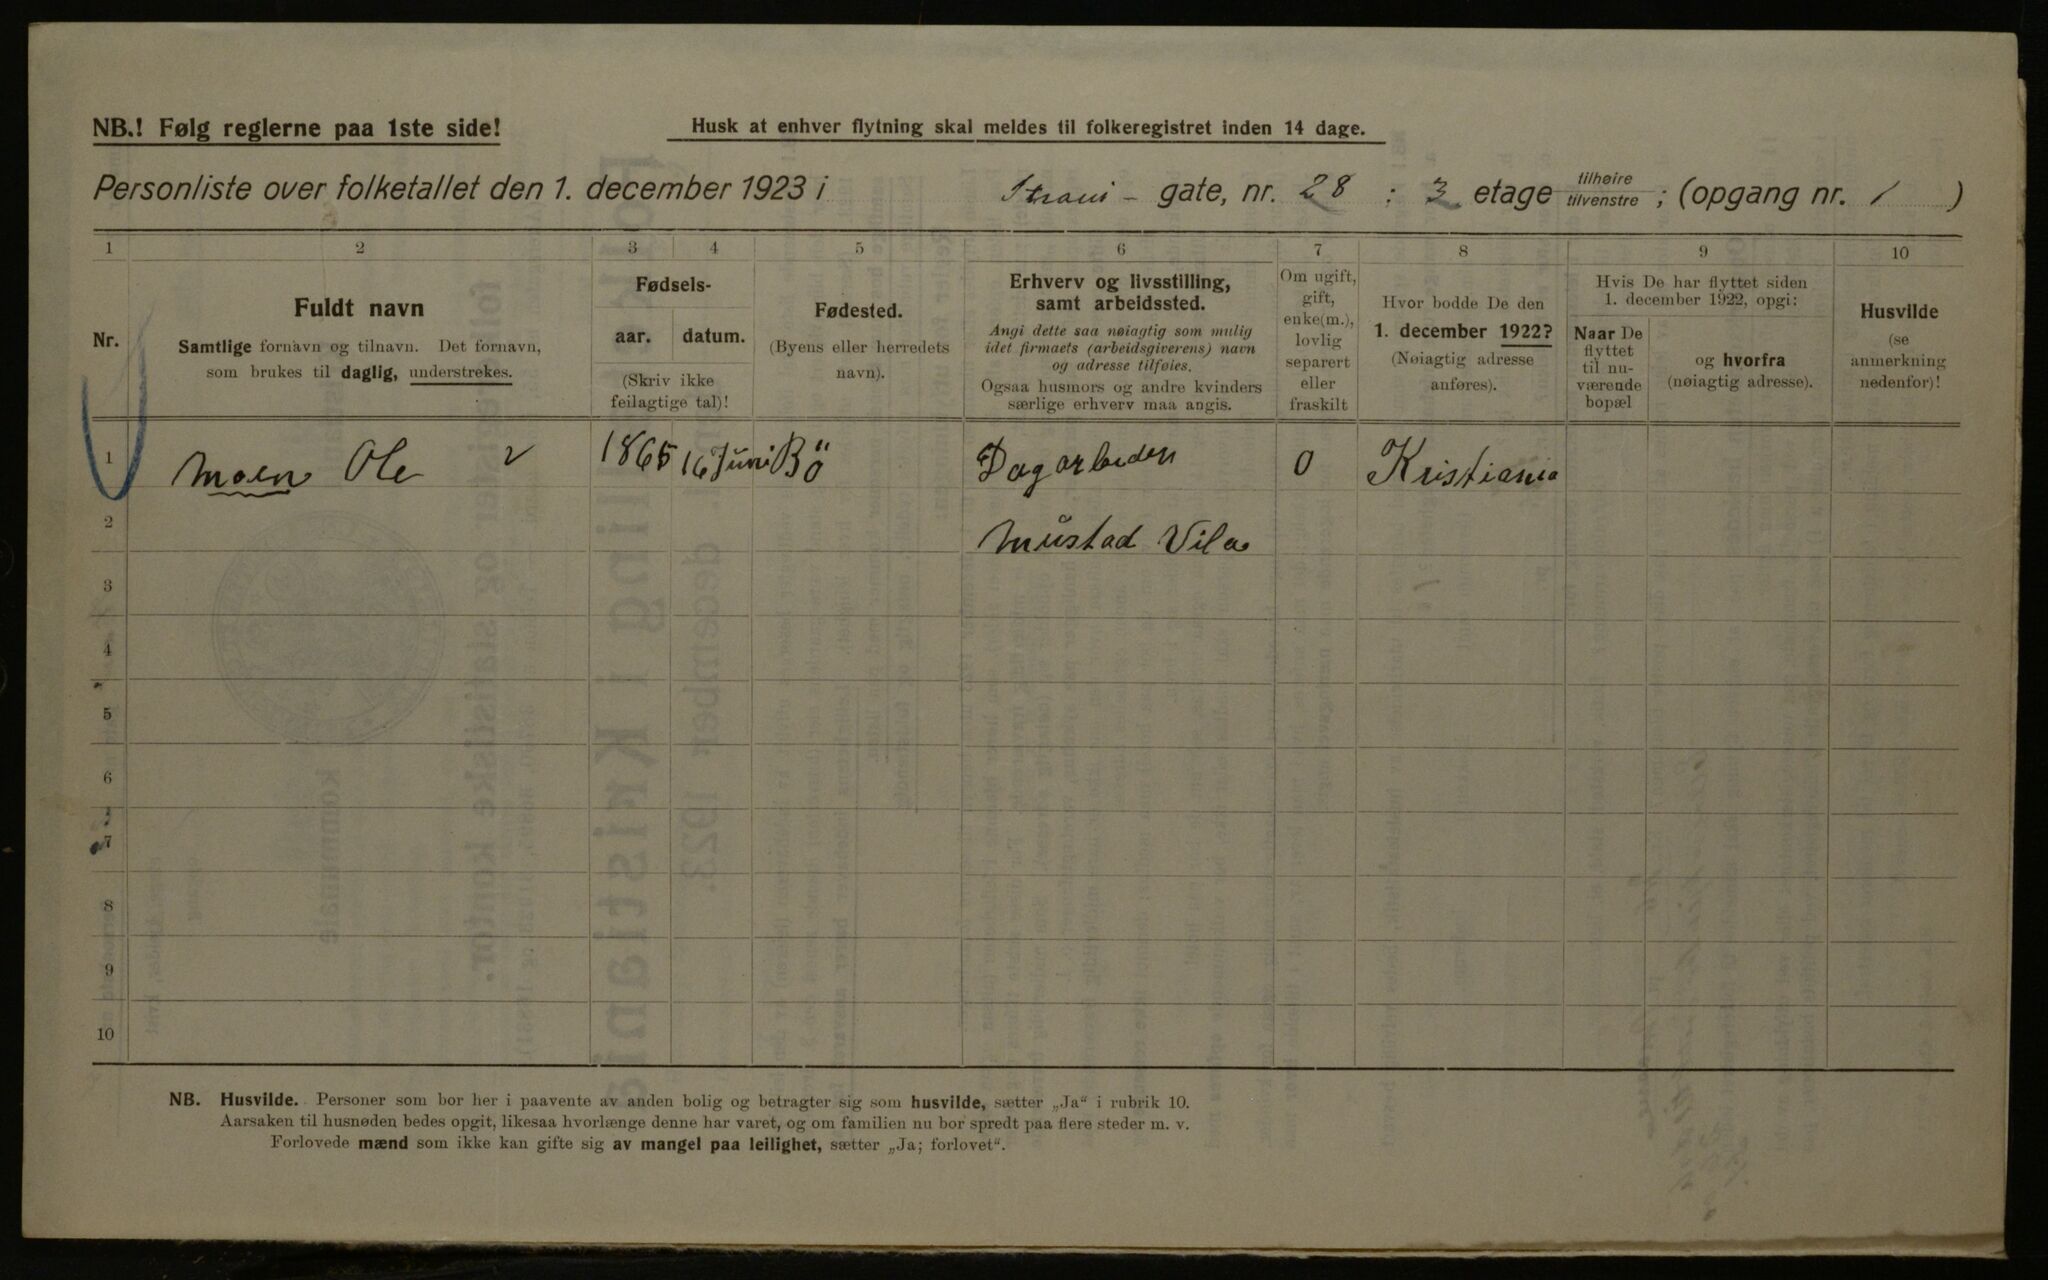 NB.! Følg reglerne paa 1ste side!
Husk at enhver flytning skal meldes til folkeregistret inden 14 dage.
Personliste over folketallet den 1. december 1923 i gate, nr. 28 : 3 etage tilhøire tilvenstre ; (opgang nr. 1 )
1 2 3 4 5 6 7 8 9 10
Nr.
Fuldt navn
Samtlige fornavn og tilnavn. Det fornavn,
som brukes til daglig, understrekes.
Fødsels-
aar. datum.
(Skriv ikke
feilagtige tal)!
Fødested.
(Byens eller herredets
navn).
Erhverv og livsstilling,
samt arbeidssted.
Angi dette saa nøiagtig som mulig
idet firmaets (arbeidsgiverens) navn
og adresse tilføies.
Ogsaa husmors og andre kvinders
særlige erhverv maa angis.
Om ugift,
gift,
enke(m.),
lovlig
separert
eller
fraskilt
Hvor bodde De den
1. december 1922?
(Nøiagtig adresse
anføres).
Hvis De har flyttet siden
1. december 1922, opgi:
Naar De
flyttet
til nu-
værende
bopæl
og hvorfra
(nøiagtig adresse).
Husvilde
(se
anmerkning
nedenfor)!
1 Moen Ole 1865 16 Juni Bö Dagarbeider 0 Kristiania
2 Mustad Vila
3
4
5
6
7
8
9
10
NB. Husvilde. Personer som bor her i paavente av anden bolig og betragter sig som husvilde, sætter „Ja“ i rubrik 10.
Aarsaken til husnøden bedes opgit, likesaa hvorlænge denne har varet, og om familien nu bor spredt paa flere steder m. v.
Forlovede mænd som ikke kan gifte sig av mangel paa leilighet, sætter „Ja; forlovet“.